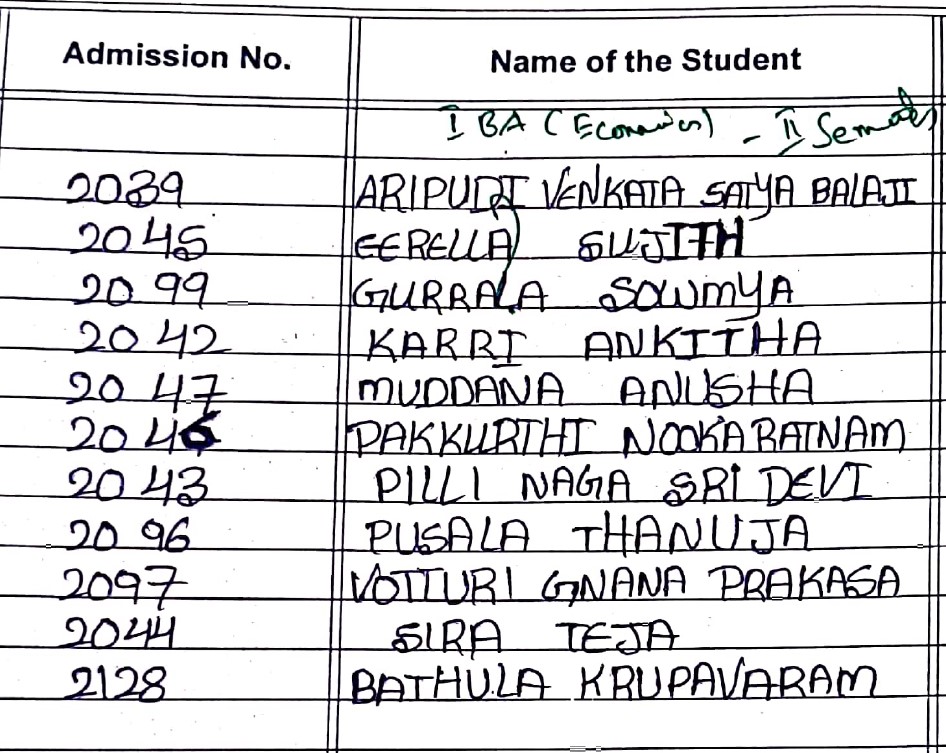 Admission No. Name of the Student
I BA (Economics) - II Semester
2039 ARIPUDI VENKATA SATYA BALAJI
2045 EERELLA SUJITH
2099 GURRALA SOWMYA
2042 KARRI ANKITHA
2047 MUDDANA ANUSHA
2046 PAKKURTHI NOOKARATNAM
2043 PILLI NAGA SRI DEVI
2096 PUSALA THANUJA
2097 VOTTURI GNANA PRAKASA
2044 SIRA TEJA
2128 BATHULA KRUPAVARAM